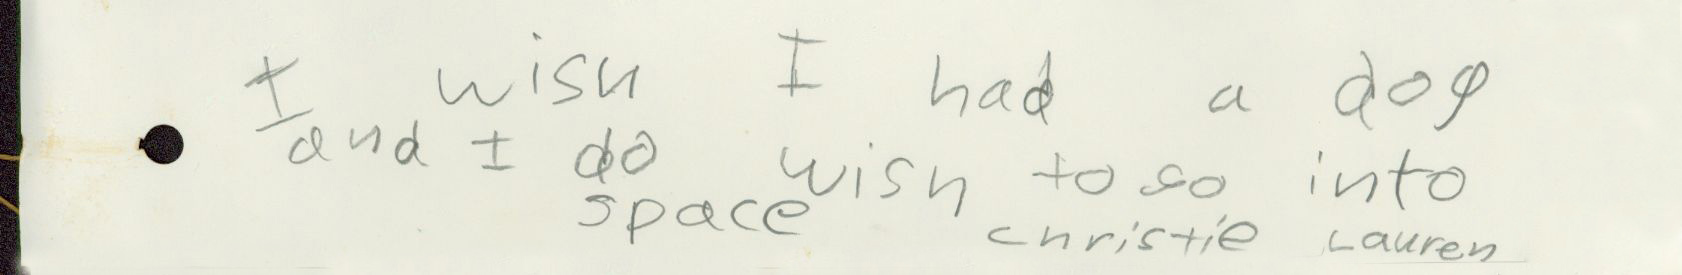 I wish I had a dog
and I do wish to go into
space christie Lauren